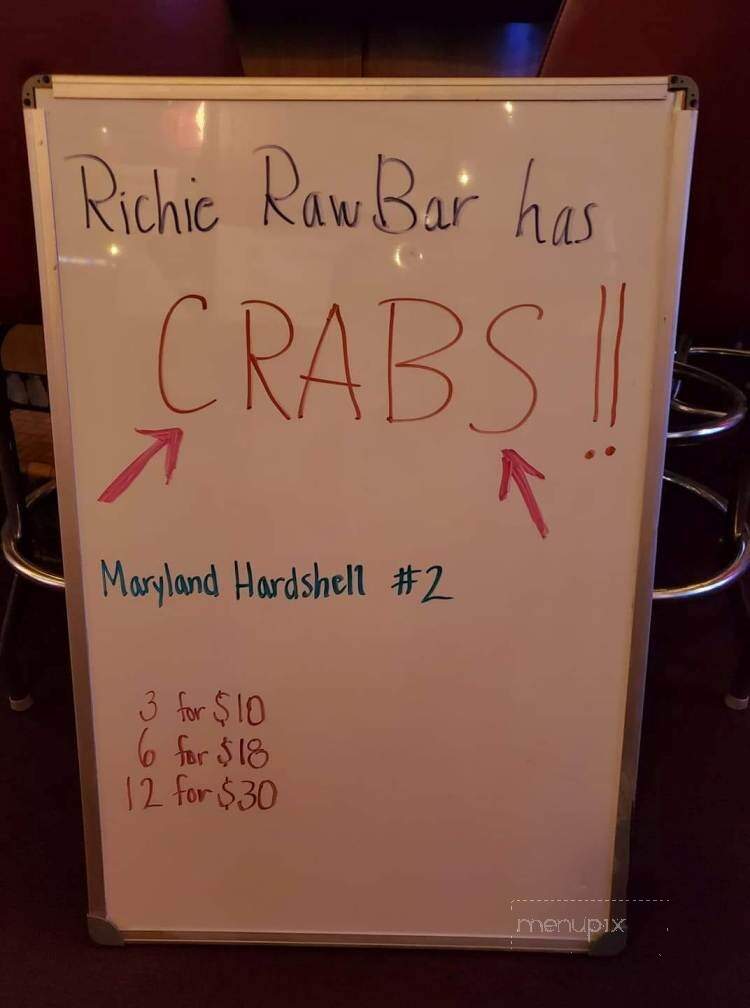 Richie Raw Bar has
CRABS!!
Maryland Hardshell #2
3 for $10
6 for $18
12 for $30
menupix